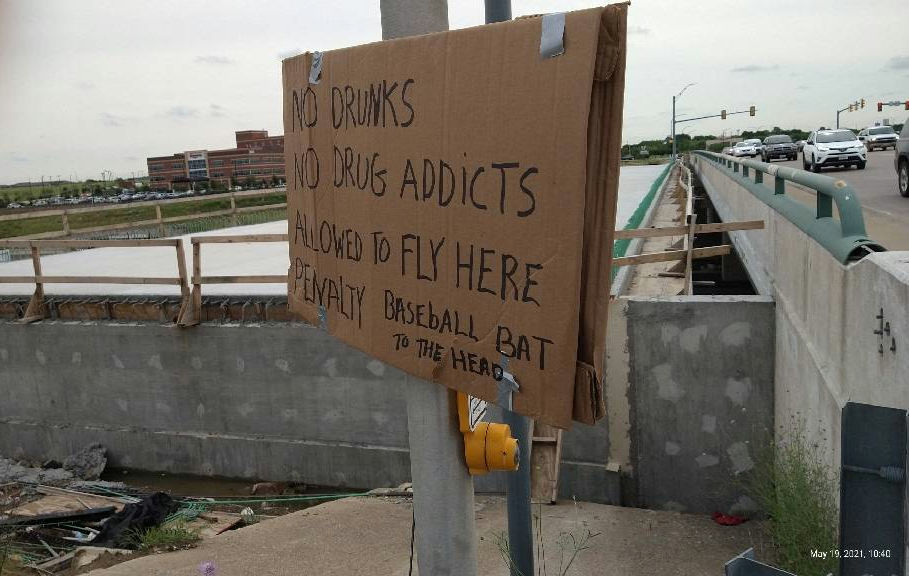 NO DRUNKS
NO DRUG ADDICTS
ALLOWED TO FLY HERE
PENALTY BASEBALL BAT
TO THE HEAD
May 19, 2021, 10:40